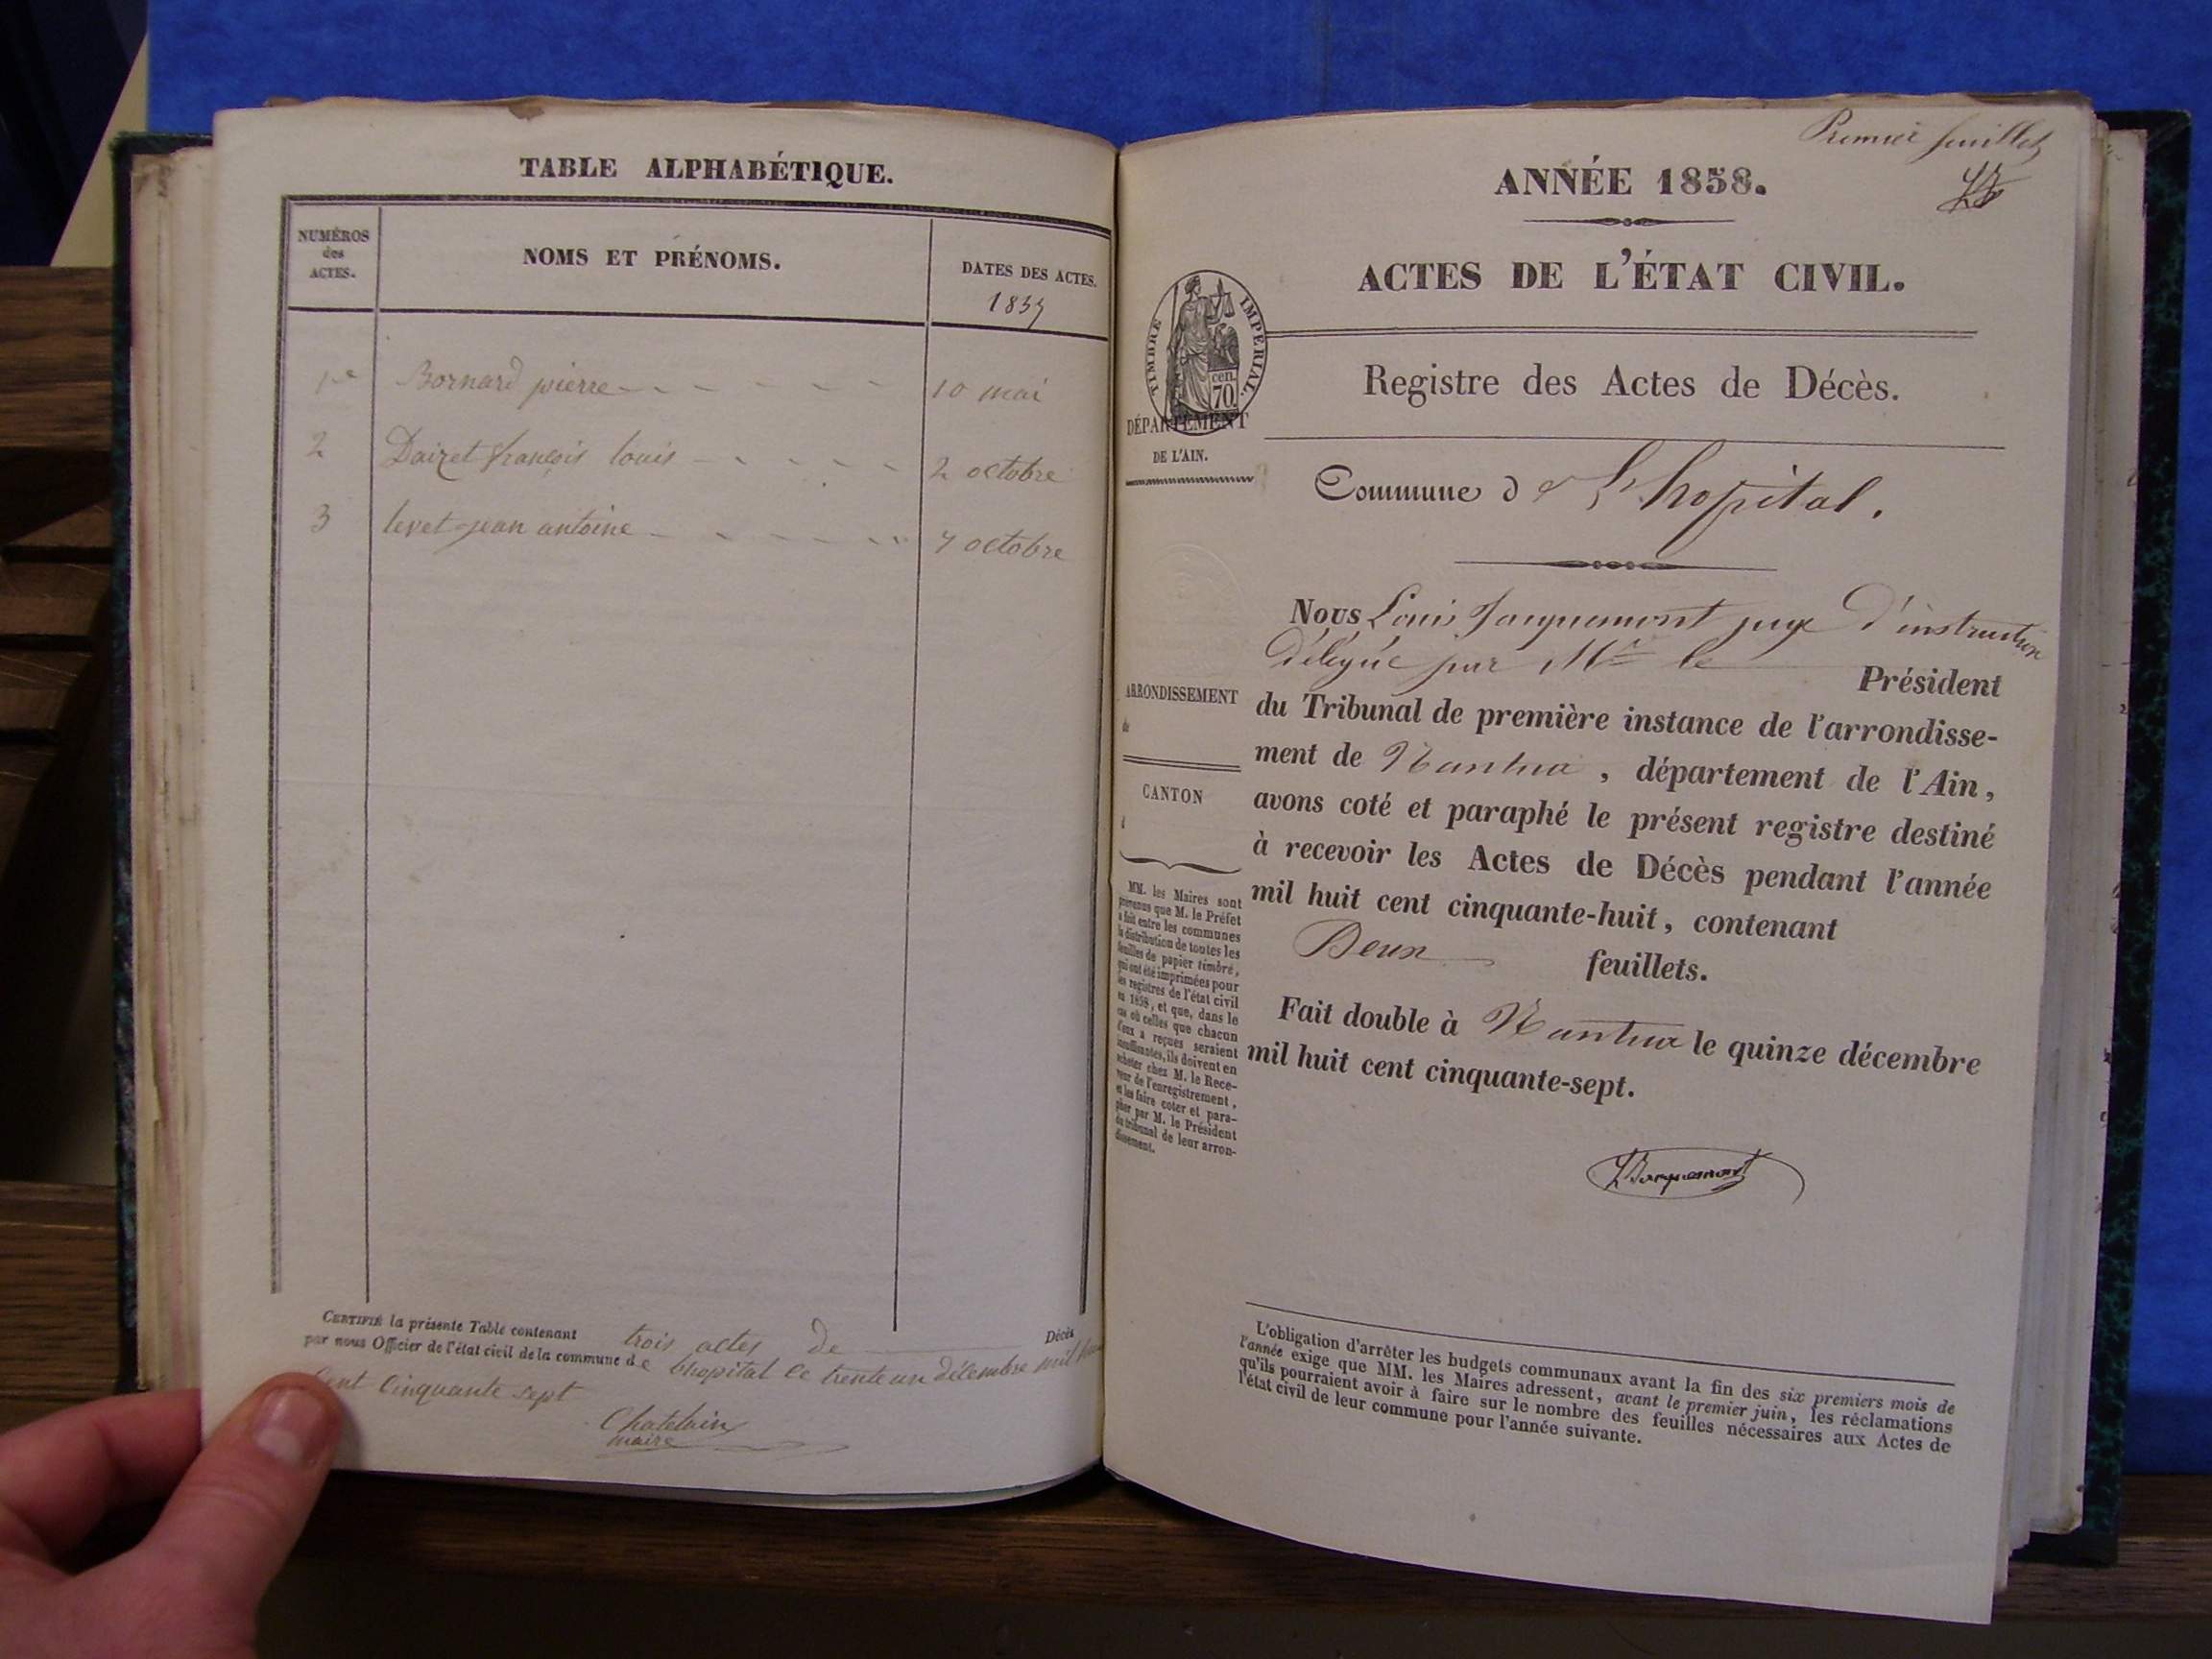 TABLE ALPHABÉTIQUE.
NUMÉROS
des
ACTES.
NOMS ET PRÉNOMS.
DATES DES ACTES.
1857
1er Bornard pierre 10 mai
2 Dairet françois louis 2 octobre
3 levet jean antoine 7 octobre
CERTIFIÉ la présente Table contenant trois actes de Décès
par nous Officier de l'état civil de la commune de lhopital le trente un décembre mil huit
Cent Cinquante sept
Chatelain
maire
Premier feuillet
ANNÉE 1858.
ACTES DE L'ÉTAT CIVIL.
TIMBRE IMPÉRIAL.
cen.
70.
Registre des Actes de Décès.
DÉPARTEMENT
DE L'AIN.
Commune de L'hopital.
Nous Louis Jacquemont juge d'instruction
délégué par Mr le Président
du Tribunal de première instance de l'arrondisse-
ment de Nantua, département de l'Ain,
avons coté et paraphé le présent registre destiné
à recevoir les Actes de Décès pendant l'année
mil huit cent cinquante-huit, contenant
Deux feuillets.
Fait double à Nantua le quinze décembre
mil huit cent cinquante-sept.
LJacquemont
ARRONDISSEMENT
de
CANTON
d
MM. les Maires sont
prévenus que M. le Préfet
a fait entre les communes
la distribution de toutes les
feuilles de papier timbré,
qui ont été imprimées pour
les registres de l'état civil
en 1858, et que, dans le
cas où celles que chacun
d'eux a reçues seraient
insuffisantes, ils doivent en
acheter chez M. le Rece-
veur de l'enregistrement,
et les faire coter et para-
pher par M. le Président
du tribunal de leur arron-
dissement.
L'obligation d'arrêter les budgets communaux avant la fin des six premiers mois de
l'année exige que MM. les Maires adressent, avant le premier juin, les réclamations
qu'ils pourraient avoir à faire sur le nombre des feuilles nécessaires aux Actes de
l'état civil de leur commune pour l'année suivante.